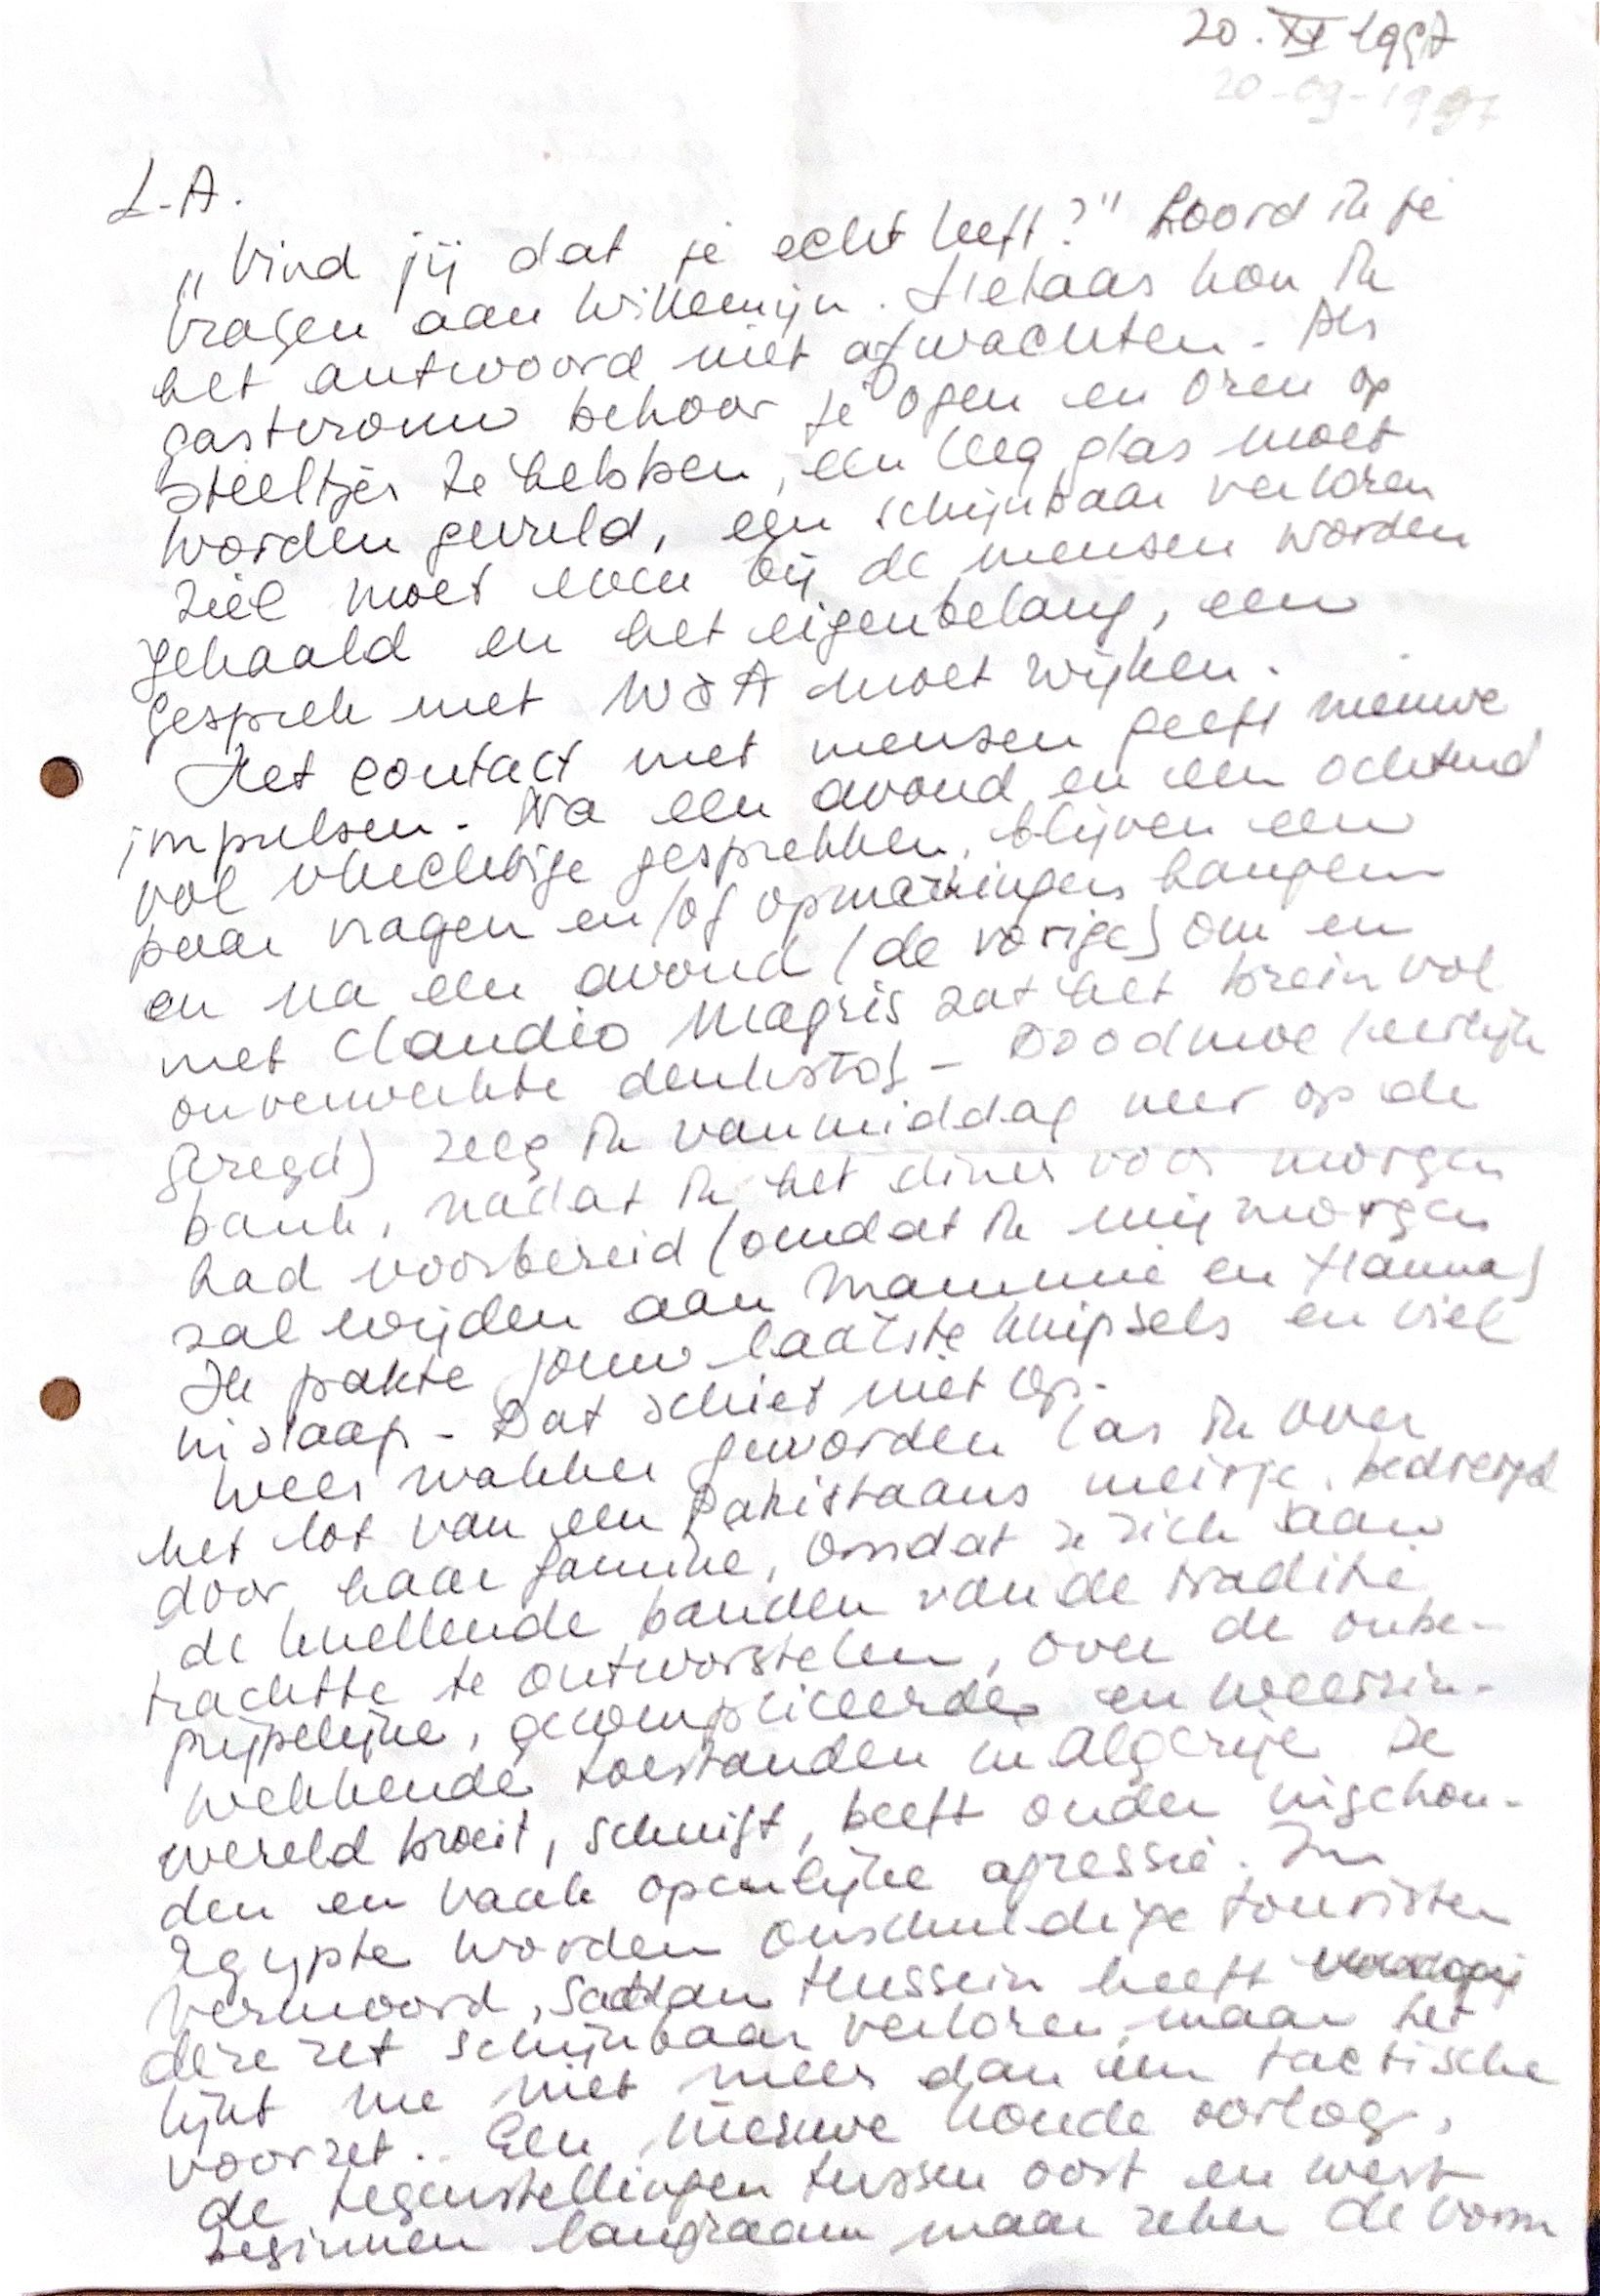 20. XI 1997
20-09-1997
L.A.
„Vind jij dat je echt leeft?" hoord ik je
vragen aan Willemijn. Helaas kon ik
het antwoord niet afwachten. Als
gastvrouw behoor je ogen en oren op
steeltjes te hebben, een leeg glas moet
worden gevuld, een schijnbaar verloren
ziel moet even bij de mensen worden
gehaald en het eigenbelang, een
gesprek met W & A moet wijken.
Het contact met mensen geeft nieuwe
impulsen. Na een avond en een ochtend
vol vluchtige gesprekken, blijven een
paar vragen en/of opmerkingen hangen
en na een avond (de vorige) om en
met Claudio Magris zat het brein vol
onverwerkte denkstof - Doodmoe (eerlijk
gezegd) zeeg ik vanmiddag neer op de
bank, nadat ik het diner voor morgen
had voorbereid (omdat ik mij morgen
zal wijden aan Mammie en Hanna)
Ik pakte jouw laatste knipsels en viel
in slaap - Dat schiet niet op.
Weer wakker geworden las ik over
het lot van een Pakistaans meisje, bedreigd
door haar familie, omdat ze zich aan
de knellende banden van de traditie
trachtte te ontworstelen, over de onbe-
grijpelijke, gecompliceerde en weerzin-
wekkende toestanden in Algerije De
wereld broeit, schuift, beeft onder ingehou-
den en vaak openlijke agressie. In
Egypte worden onschuldige touristen
vermoord, Saddam Hussein heeft
deze zet schijnbaar verloren, maar het
lijkt me niet meer dan een tactische
voorzet.. Een nieuwe koude oorlog,
de tegenstellingen tussen oost en west
beginnen langzaam maar zeker de vorm